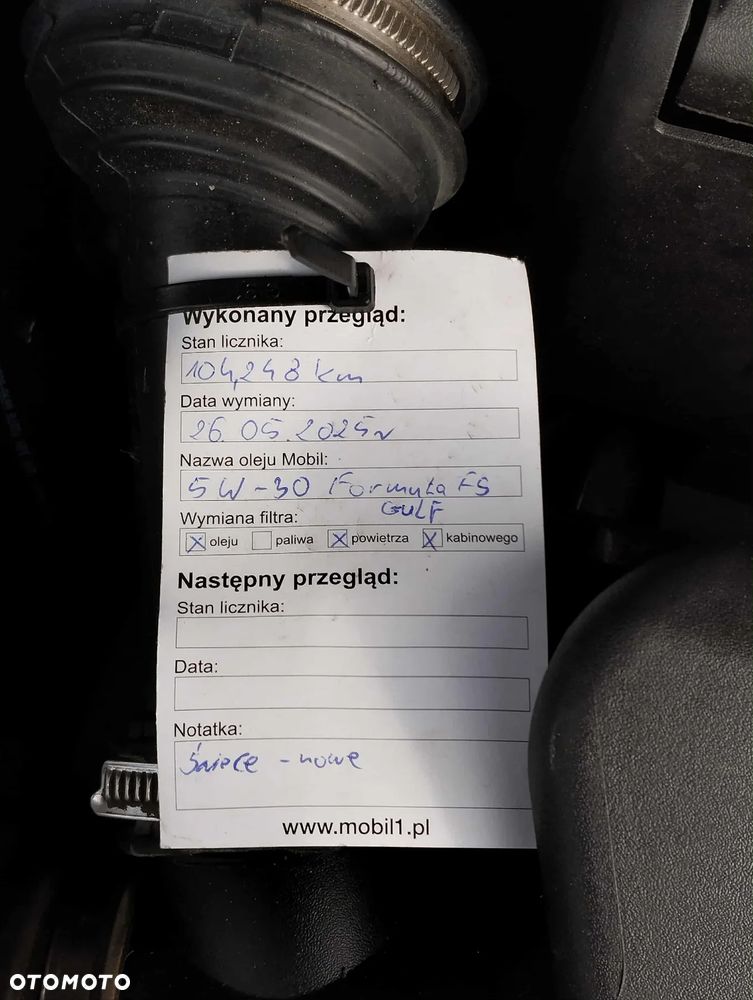 Wykonany przegląd:
Stan licznika:
104,248 km
Data wymiany:
26.05.2025r
Nazwa oleju Mobil:
5W-30 Formuła FS
GULF
Wymiana filtra:
oleju paliwa powietrza kabinowego
Następny przegląd:
Stan licznika:
Data:
Notatka:
Świece - nowe
www.mobil1.pl
OTOMOTO